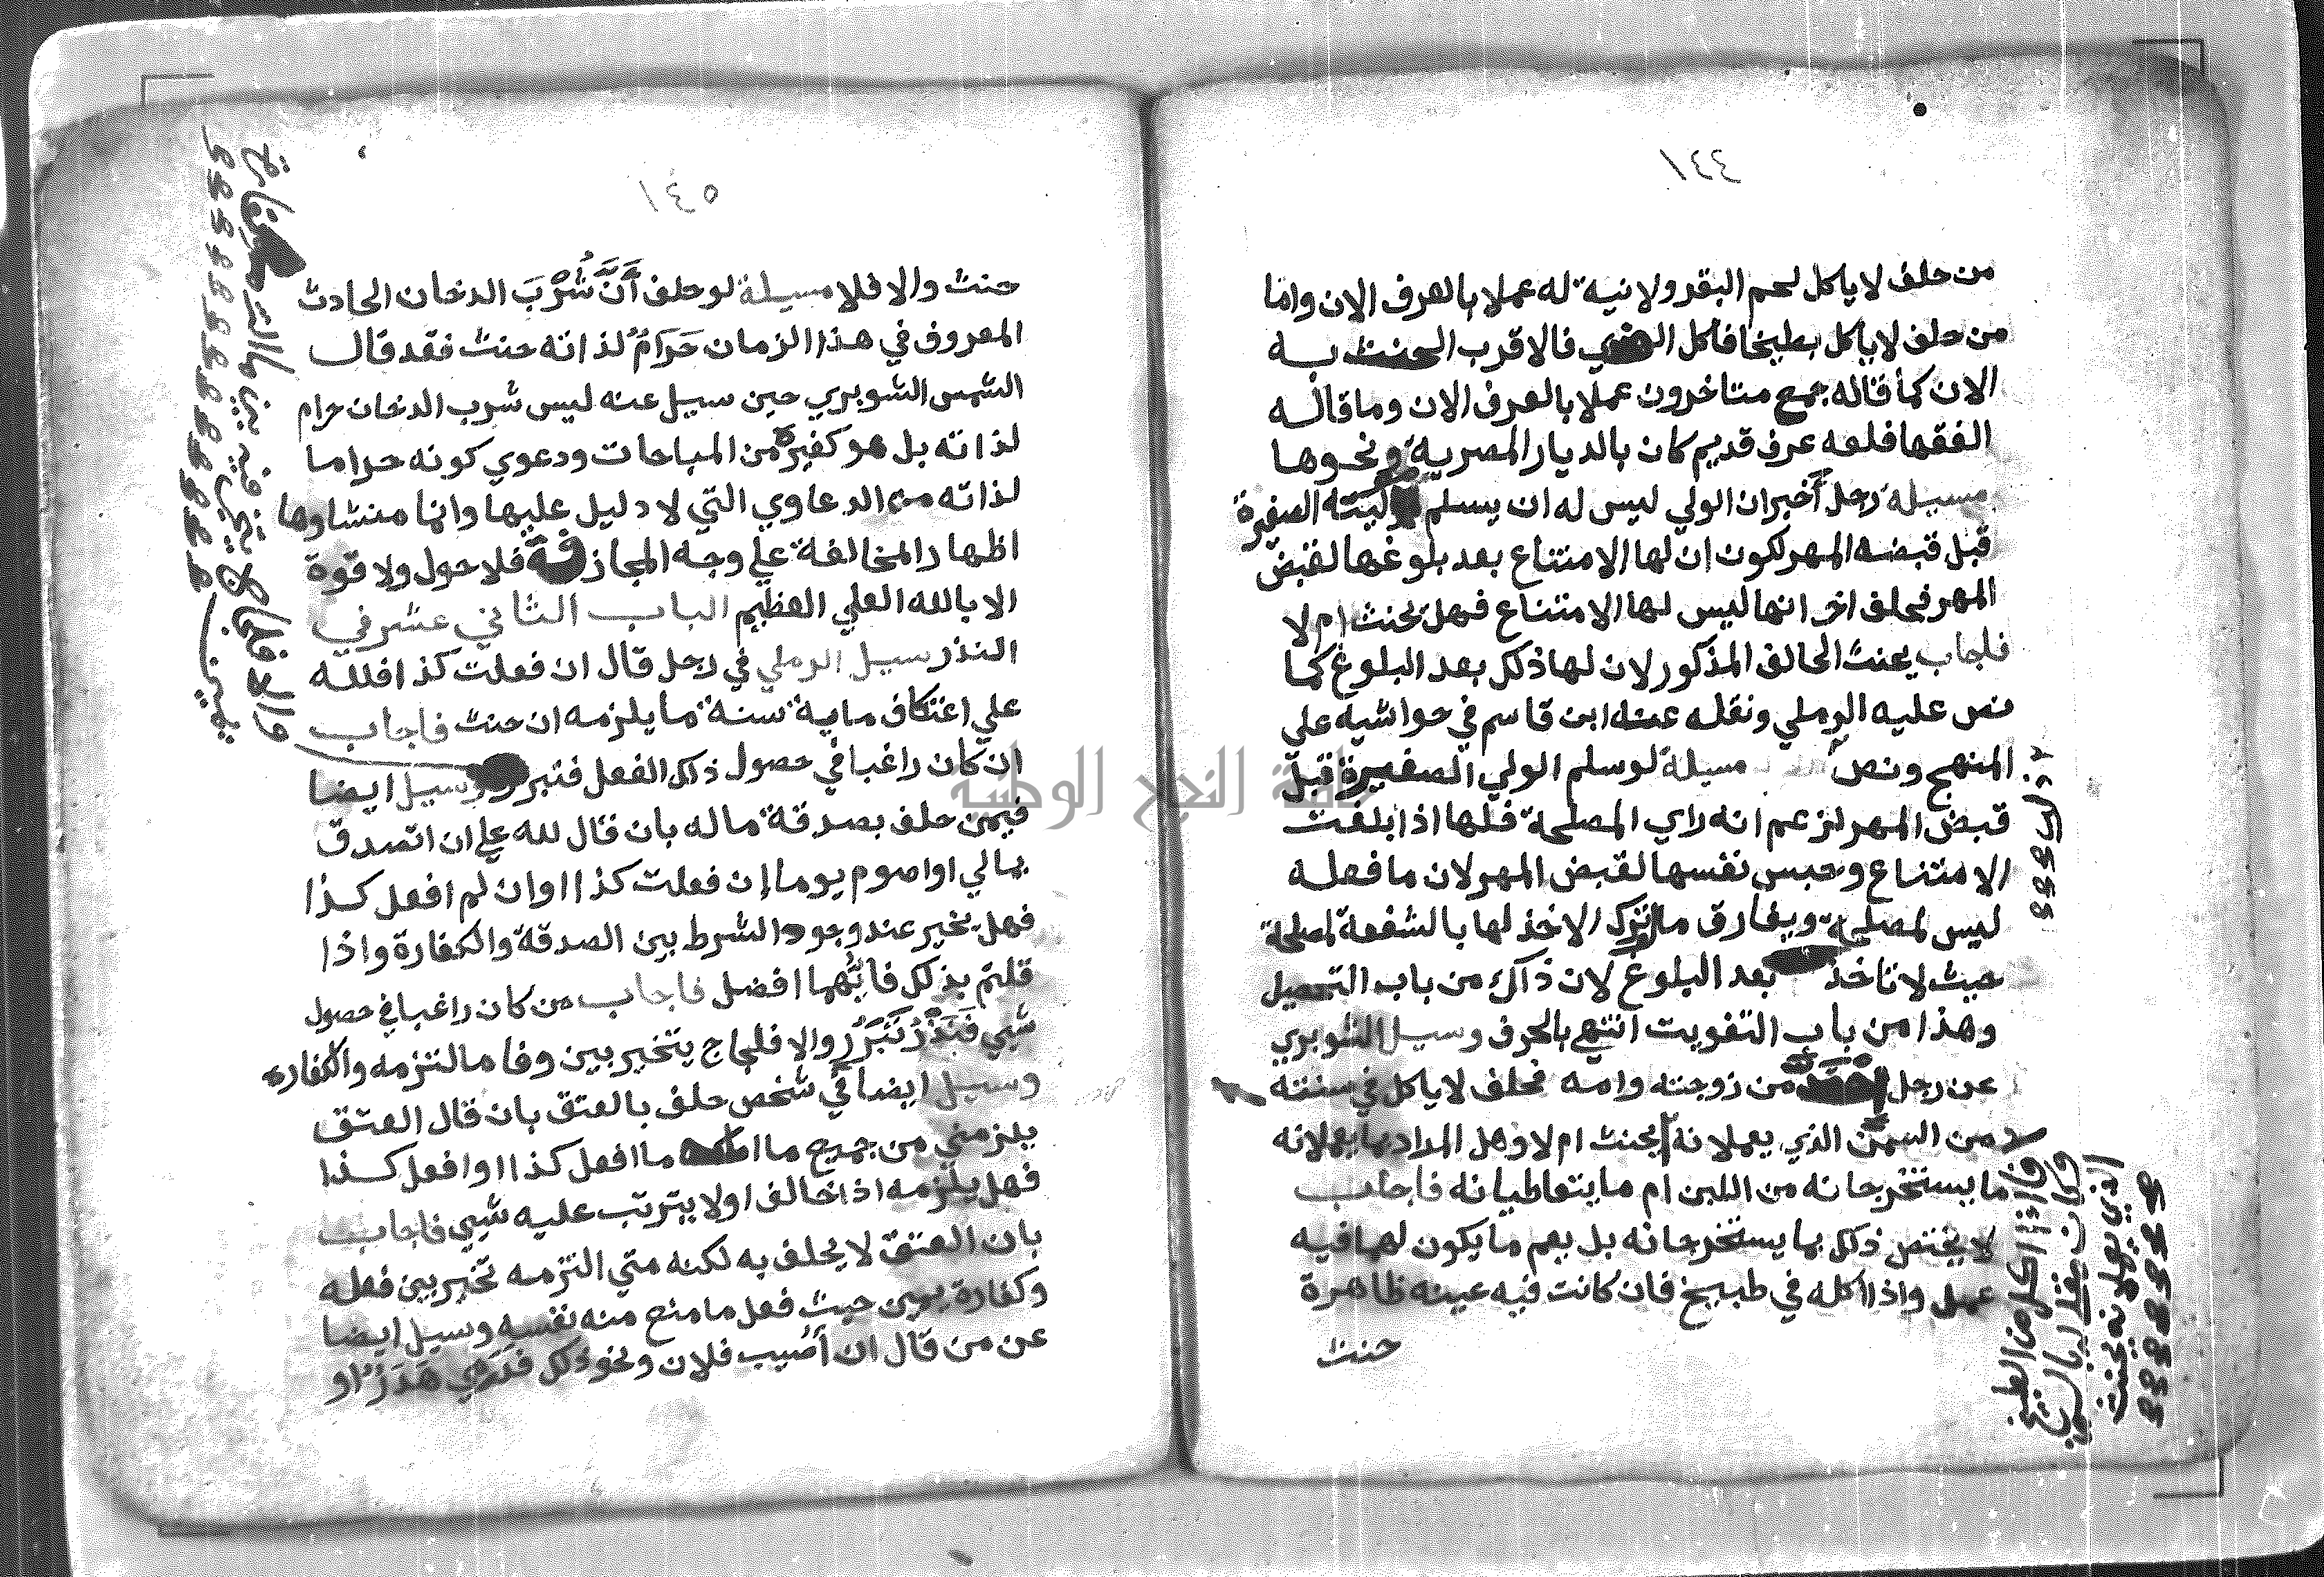 ١٤٤
من حلف لا ياكل لحم البقر ولا نية له عملا بالعرف الان واما
من حلف لا ياكل بطيخا فاكل الهندي فالاقرب الحنث به
الان كما قاله جمع متاخرون عملا بالعرف الان وما قاله
الفقها فلعه عرف قديم كان بالديار المصرية ونحوها
مسيلة رجل أخبر ان الولي ليس له ان يسلم موليته الصغيرة
قبل قبضه المهر لكون ان لها الامتناع بعد بلوغها لقبض
المهر فحلف اخر انها ليس لها الامتناع فهل يحنث ام لا
فاجاب يحنث الحالف المذكور لان لها ذلك بعد البلوغ كما
نص عليه الرملي ونقله عنه ابن قاسم في حواشيه علي
المنهج ونص مسيلة لو سلم الولي الصغيرة قبل
قبض المهر لزعم انه راي المصلحة فلها اذا بلغت
الامتناع وحبس نفسها لقبض المهر لان ما فعله
ليس لمصلحة ويفارق ما لو ترك الاخذ لها بالشفعة لمصلحة
حيث لا تاخذ بعد البلوغ لان ذاك من باب التحصيل
وهذا من باب التفويت انتهي بالحرف وسيل الشوبري
عن رجل من زوجته وامه فحلف لا ياكل في سنته
من السمن الذي يعملانه يحنث ام لا وهل المراد بما يعملانه
ما يستخرجانه من اللبن ام ما يتعاطيانه فاجاب
لا يختص ذلك بما يستخرجانه بل يعم ما يكون لهما فيه
عمل واذا اكله في طبيخ فان كانت فيه عينه ظاهرة
حنث
فاذا اكل من الطبيخ
الذي يعملانه يحنث
١٤٥
حنث والا فلا مسيلة لو حلف أَنَّ شُرْبَ الدخان الحادث
المعروف في هذا الزمان حَرَامٌ لذاته حنث فقد قال
الشمس الشوبري حين سيل عنه ليس شرب الدخان حرام
لذاته بل هو كغيره من المباحات ودعوي كونه حراما
لذاته من الدعاوي التي لا دليل عليها وانما منشاوها
اظهار المخالفة علي وجه المجازفة فلا حول ولا قوة
الا بالله العلي العظيم الباب الثاني عشر في
النذر سيل الرملي في رجل قال ان فعلت كذا فلله
علي اعتكاف ماية سنة ما يلزمه ان حنث فاجاب
ان كان راغبا في حصول ذلك الفعل فتبرر وسيل ايضا
فيمن حلف بصدقة ماله بان قال لله علي ان اتصدق
بمالي او اصوم يوما إن فعلت كذا او ان لم افعل كذا
فهل يخير عند وجود الشرط بين الصدقة والكفارة واذا
قلتم بذلك فايُّهما افضل فاجاب من كان راغبا في حصول
شيي فَنَذْرُ تَبَرُّرٍ والا فلجاج يتخير بين وفا ما التزمه والكفاره
وسيل ايضا في شخص حلف بالعتق بان قال العتق
يلزمني من جميع ما املكه ما افعل كذا او افعل كذا
فهل يلزمه اذا خالف او لا يترتب عليه شيي فاجاب
بان العتق لا يحلف به لكنه متي التزمه تخير بين فعله
وكفارة يمين حيث فعل ما منع منه نفسه وسيل ايضا
عن من قال ان أُصيب فلان ونحو ذلك فَدَمي هَدَرٌ او
والا فلجاج يتخير فيه بين ما التزمه وكفارة
يمين
جامعة النجاح الوطنية